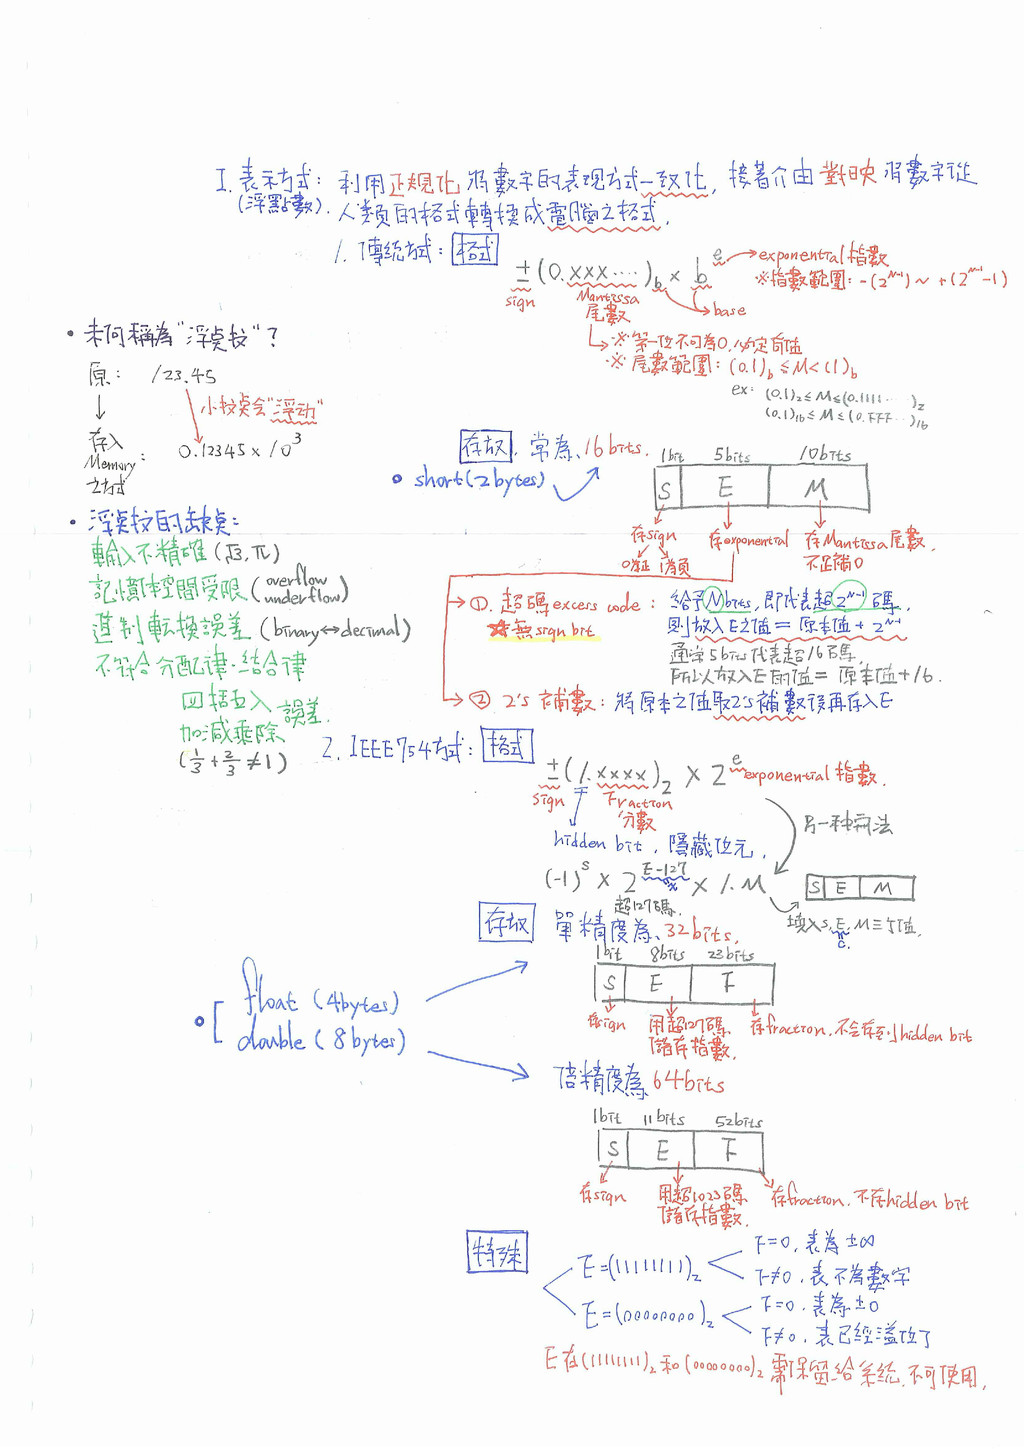 I. 表示方式: 利用正規化 將數字的表現方式一致化, 接著介由 對映 將數字從
(浮點數). 人類的格式轉換成電腦之格式.
1. 傳統方式: 格式
±(0.xxx....)b × b^e → exponential 指數
※指數範圍: -(2^(N-1)) ~ +(2^(N-1)-1)
sign
Mantissa
尾數
base
※ 第一位不可為0, 必定有值
※ 尾數範圍: (0.1)b ≤ M < (1)b
ex: (0.1)2 ≤ M ≤ (0.1111...)2
(0.1)16 ≤ M ≤ (0.FFF...)16
• 為何稱為"浮点数"?
原: 123.45
小数点会"浮动"
存入
Memory
之方式
: 0.12345 × 10^3
存取. 常為, 16 bits.
• short (2 bytes)
1bit 5bits 10bits
S E M
存sign 存exponential 存Mantissa 尾數,
0為正 1為負 不足補0
• 浮点数的缺点:
輸入不精確 (√3, π)
記憶体空間受限 (overflow
underflow)
進制転換誤差 (binary↔decimal)
不符合分配律.結合律
四捨五入
加減乘除 誤差.
(1/3 + 2/3 ≠ 1)
→ ①. 超碼 excess code: 給予N bits, 即代表超2^(N-1)碼,
☆無sign bit 則放入E之值 = 原本值 + 2^(N-1)
通常5bits代表超16碼
所以放入E的值 = 原本值 + 16.
→ ② 2's 補數: 將原本之值取2's補數後再存入E
2. IEEE754方式: 格式
±(1.xxxx)2 × 2^e exponential 指數.
sign Fraction
分數
hidden bit, 隱藏位元,
另一種寫法
(-1)^s × 2^(E-127) × 1.M
超127碼.
S E M
填入S, E, M 三個值.
存取 單精度為, 32bits,
1bit 8bits 23bits
S E F
存sign 用超127碼 存fraction, 不会存到hidden bit
儲存指數.
• [ float (4 bytes)
double (8 bytes)
倍精度為, 64bits
1bit 11bits 52bits
S E F
存sign 用超1023碼 存fraction, 不存hidden bit
儲存指數.
特殊
E=(11111111)2 F=0, 表為 ±∞
F≠0, 表不為數字
E=(00000000)2 F=0, 表為 ±0
F≠0, 表已經溢位了
E 在(11111111)2 和 (00000000)2 需保留給系統, 不可使用.